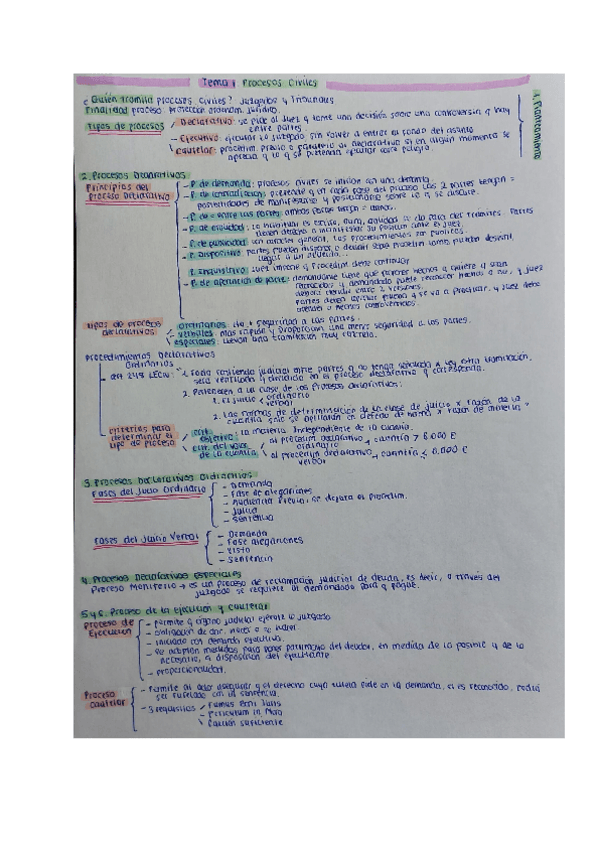 Tema 1 Procesos Civiles
¿Quién tramita procesos civiles? Juzgados y Tribunales
Finalidad proceso: proteger ordenam. jurídico.
1. Planteamiento
Tipos de procesos
- Declarativo: se pide al juez q tome una decisión sobre una controversia q hay
entre partes.
- Ejecutivo: ejecutar lo juzgado, sin volver a entrar el fondo del asunto
- Cautelar: procedim. previo o paralelo al declarativo si en algún momento se
aprecia q lo q se pretenda ejecutar corre peligro.
2. Procesos Declarativos
Principios del
Proceso Declarativo
- P. de demanda: procesos civiles se inician con una demanda.
- P. de contradicción: pretende q en cada fase del proceso las 2 partes tengan =
posibilidades de manifestarse y posicionarse sobre lo q se discute.
- P. de = entre las partes: ambas partes tienen =
- P. de oralidad:
tienen derecho a
- P. de publicidad: con carácter general, los procedimientos son públicos
- P. dispositivo: partes pueden disponer o decidir sobre procedim. como pueden desistir,
llegar a un acuerdo...
- P. inquisitivo: juez impone q procedim. debe continuar
- P. de aportación de parte: demandante tiene que probar hechos q quiere q sean
reconocidos y demandado puede reconocer hechos o no, y juez
deberá decidir entre 2 versiones.
partes deben aportar prueba q se va a practicar, y juez debe
atender a hechos controvertidos.
Tipos de procesos
declarativos
- ordinarios: da + seguridad a las partes.
- verbales: más rápido y proporcionan una menor seguridad a las partes.
- especiales: llevan una tramitación muy concreta.
Procedimientos Declarativos
Ordinarios
- art 248 LECiv:
1. Toda contienda judicial entre partes q no tenga señalada x ley otra tramitación,
será ventilada y decidida en el proceso declarativo q corresponda.
2. Pertenecen a la clase de los procesos declarativos:
1. El juicio ordinario
verbal
2. Las normas de determinación de la clase de juicio x razón de la
cuantía solo se aplicarán en defecto de norma x razón de materia
- criterios para
determinar el
tipo de proceso
crit.
objetivo: la materia. Independiente de la cuantía.
crit. del valor
de la cuantía
al procedim declarativo
ordinario → cuantía > 6.000 €
al procedim declarativo
verbal → cuantía ≤ 6.000 €
3. Procesos Declarativos Ordinarios
Fases del Juicio Ordinario
- Demanda
- Fase alegaciones
- Audiencia Previa: se depura el procedim.
- Juicio
- Sentencia
Fases del Juicio Verbal
- Demanda
- Fase alegaciones
- Vista
- Sentencia
4. Procesos Declarativos Especiales
Proceso Monitorio → es un proceso de reclamación judicial de deudas, es decir, a través del
juzgado se requiere al demandado para q pague.
5 y 6. Proceso de la ejecución y cautelar
Proceso de
Ejecución
- Permite q órgano judicial ejecute lo juzgado
- Obligación de dar, hacer o no hacer
- iniciado con demanda ejecutiva.
- Se adoptan medidas para poner patrimonio del deudor, en medida de lo posible y de lo
necesario, a disposición del ejecutante
- proporcionalidad.
Proceso
cautelar
- Permite al actor asegurar q el derecho cuya tutela pide en la demanda, si es reconocido, podrá
ser tutelado con la sentencia.
- 3 requisitos
Fumus Boni Iuris
Periculum in Mora
Caución suficiente